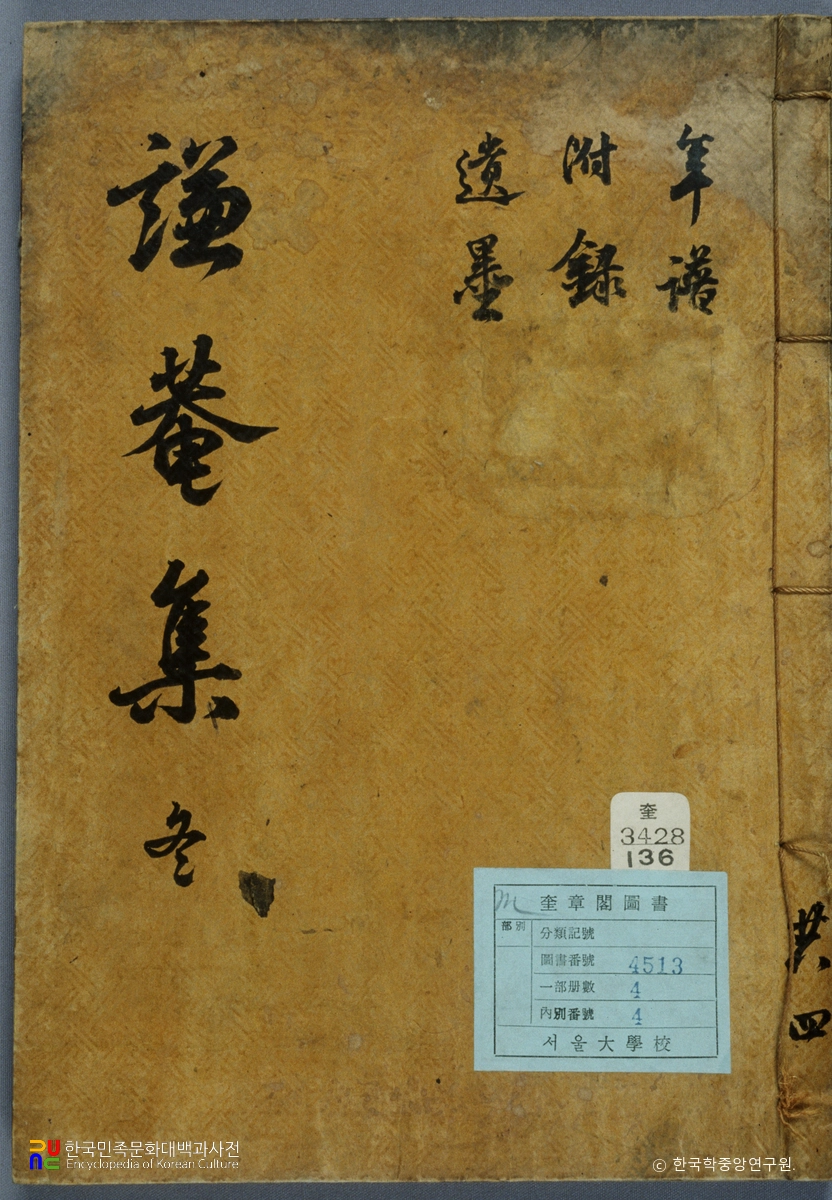 年譜
附錄
遺墨
謙菴集 冬
共四
奎
3428
136
奎章閣圖書
部別
分類記號
圖書番號 4513
一部册數 4
內別番號 4
서울大學校
한국민족문화대백과사전
Encyclopedia of Korean Culture
© 한국학중앙연구원.